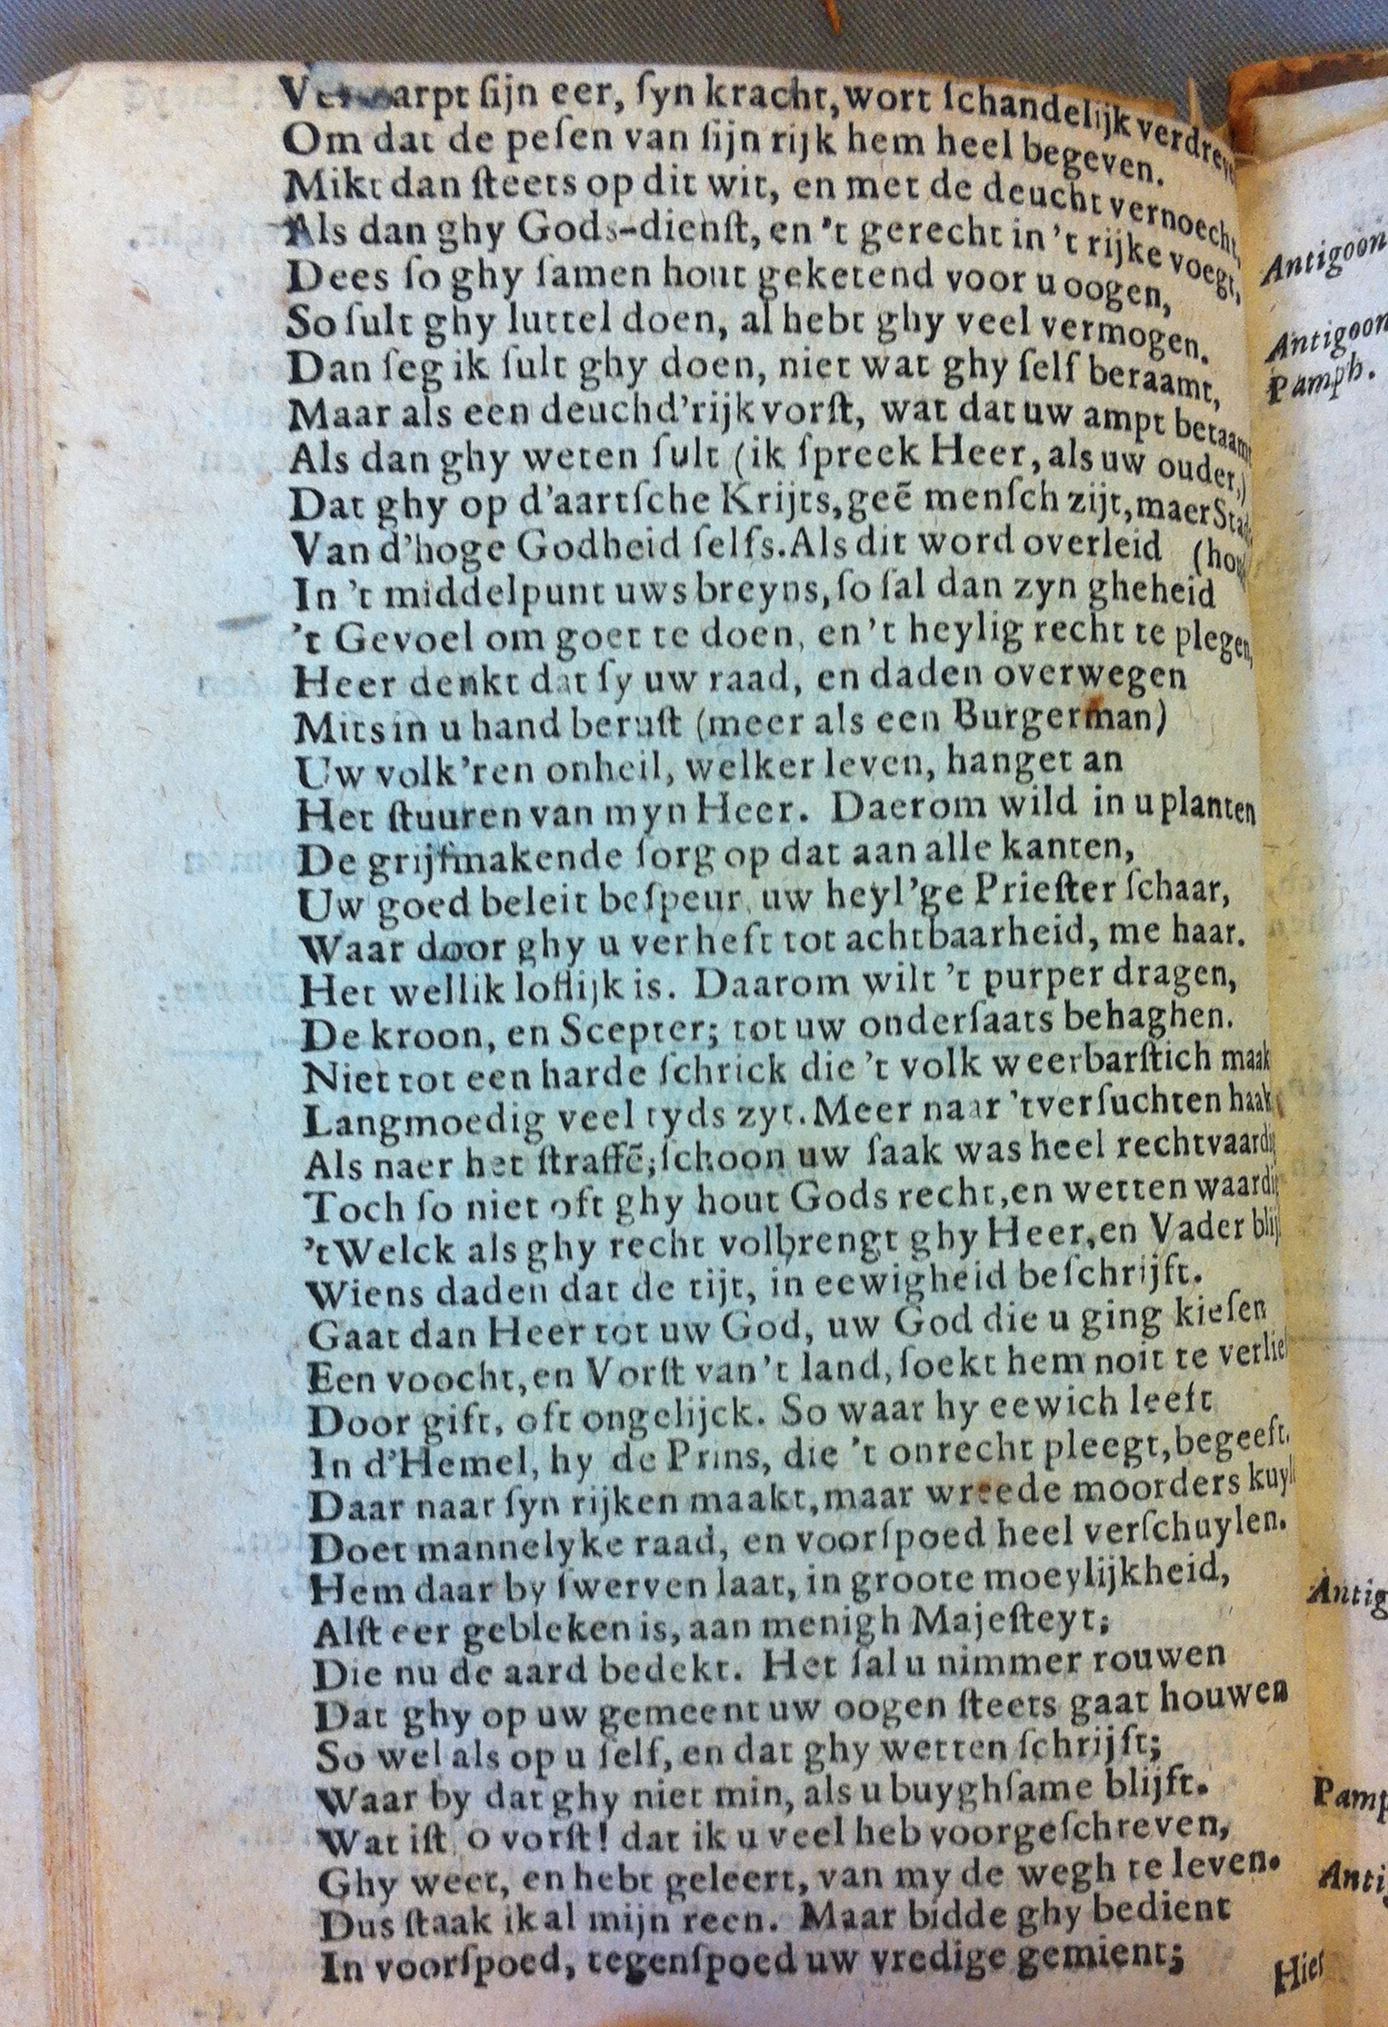 Verwarpt ſijn eer, ſyn kracht, wort ſchandelijk verdreve
Om dat de peſen van ſijn rijk hem heel begeven.
Mikt dan ſteets op dit wit, en met de deucht vernoecht,
Als dan ghy Gods-dienſt, en 't gerecht in 't rijke voegt,
Dees ſo ghy ſamen hout geketend voor u oogen,
So ſult ghy luttel doen, al hebt ghy veel vermogen.
Dan ſeg ik ſult ghy doen, niet wat ghy ſelf beraamt,
Maar als een deuchd'rijk vorſt, wat dat uw ampt betaamt
Als dan ghy weten ſult (ik ſpreek Heer, als uw ouder,)
Dat ghy op d'aartſche Krijts, geē menſch zijt, maer Stad
Van d'hoge Godheid ſelfs. Als dit word overleid (hou
In 't middelpunt uws breyns, ſo ſal dan zyn gheheid
't Gevoel om goet te doen, en 't heylig recht te plegen,
Heer denkt dat ſy uw raad, en daden overwegen
Mits in u hand beruſt (meer als een Burgerman)
Uw volk'ren onheil, welker leven, hanget an
Het ſtuuren van myn Heer. Daerom wild in u planten
De grijſmakende ſorg op dat aan alle kanten,
Uw goed beleit beſpeur, uw heyl'ge Prieſter ſchaar,
Waar door ghy u verheft tot achtbaarheid, me haar.
Het wellik loflijk is. Daarom wilt 't purper dragen,
De kroon, en Scepter; tot uw onderſaats behaghen.
Niet tot een harde ſchrick die 't volk weerbarſtich maak
Langmoedig veel tyds zyt. Meer naar 't verſuchten haak
Als naer het ſtraffē; ſchoon uw ſaak was heel rechtvaardig
Toch ſo niet oft ghy hout Gods recht, en wetten waardig
't Welck als ghy recht volbrengt ghy Heer, en Vader blij
Wiens daden dat de tijt, in eewigheid beſchrijft.
Gaat dan Heer tot uw God, uw God die u ging kieſen
Een voocht, en Vorſt van 't land, ſoekt hem noit te verlie
Door gift, oft ongelijck. So waar hy eewich leeft
In d'Hemel, hy de Prins, die 't onrecht pleegt, begeeft.
Daar naar ſyn rijken maakt, maar wreede moorders kuyl
Doet mannelyke raad, en voorſpoed heel verſchuylen.
Hem daar by ſwerven laat, in groote moeylijkheid,
Alſt eer gebleken is, aan menigh Majeſteyt;
Die nu de aard bedekt. Het ſal u nimmer rouwen
Dat ghy op uw gemeent uw oogen ſteets gaat houwen
So wel als op u ſelf, en dat ghy wetten ſchrijft;
Waar by dat ghy niet min, als u buyghſame blijft.
Wat iſt o vorſt! dat ik u veel heb voorgeſchreven,
Ghy weet, en hebt geleert, van my de wegh te leven.
Dus ſtaak ik al mijn reen. Maar bidde ghy bedient
In voorſpoed, tegenſpoed uw vredige gemient;
Antigoon
Antigoon
Pamph.
Antig
Pamp
Anti
Hieſ